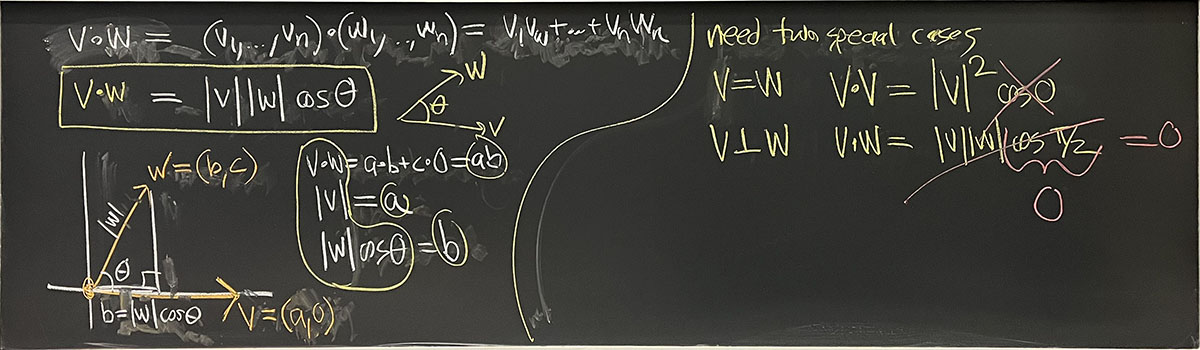 V•W = (v₁,...,vₙ)•(w₁,...,wₙ) = v₁vw+...+vₙwₙ
V•W = |V||W| cosθ
W
θ
V
W=(b,c)
|W|
θ
b=|W|cosθ
V=(a,0)
V•W=a•b+c•0=ab
|V|=a
|W|cosθ=b
need two special cases
V=W V•V = |V|² cos0
V⊥W V•W = |V||W|cos π/2 = 0
0